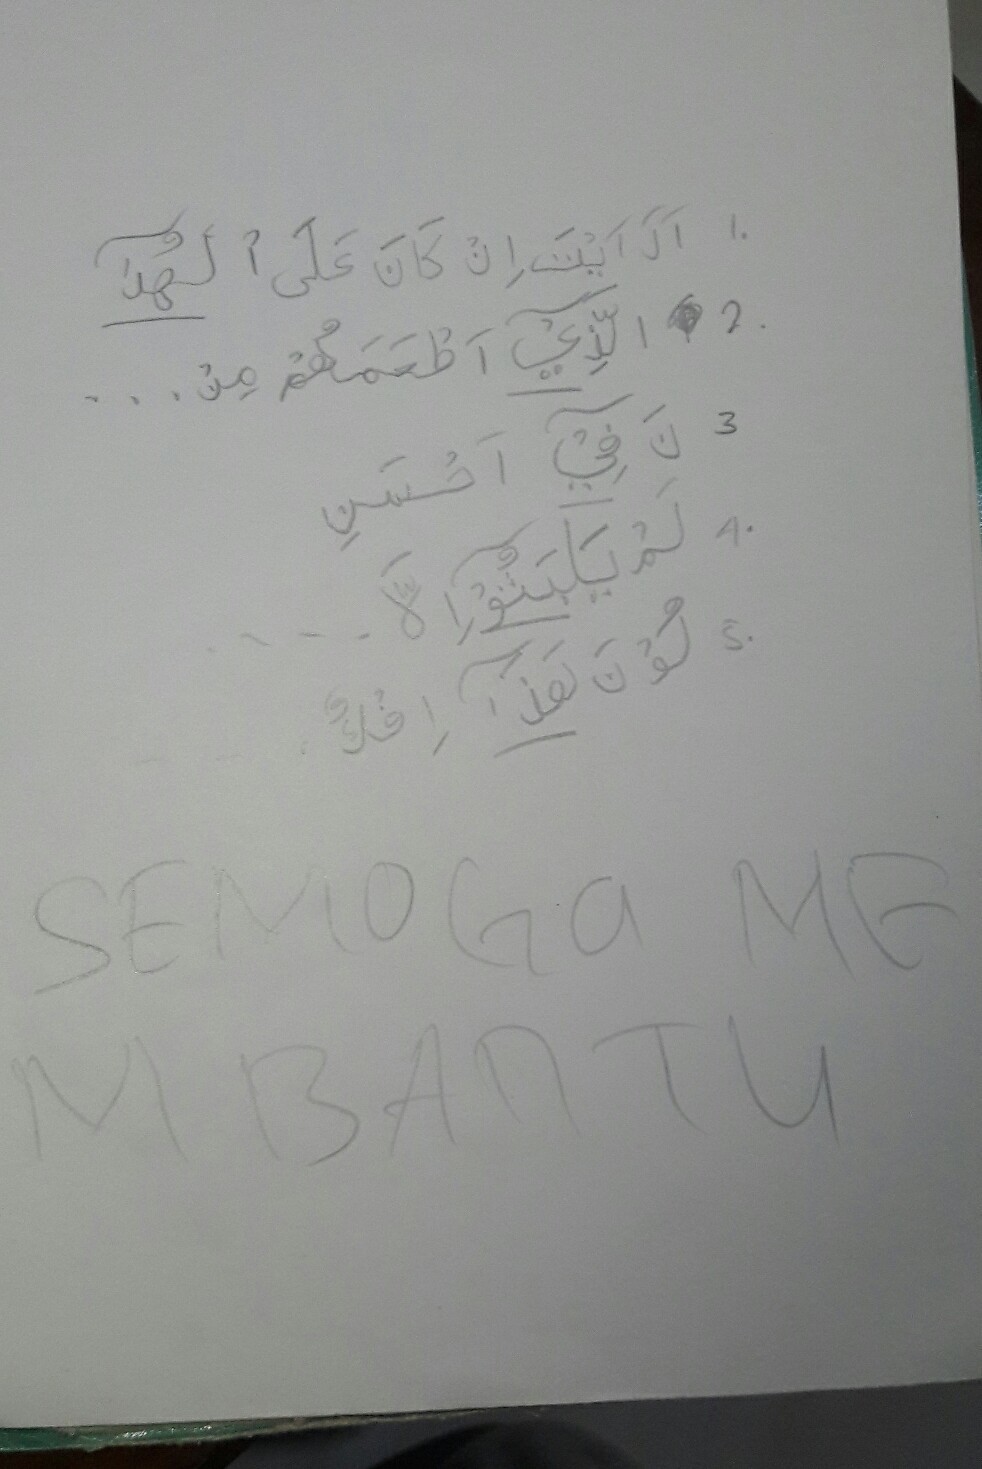 1. اَرَاَيْتَ اِنْ كَانَ عَلَى الْهُدٰٓ
2. الَّذِيْٓ اَطْعَمَهُمْ مِنْ ...
3 نَ فِيْٓ اَحْسَنِ
4. لَمْ يَلْبَثُوْٓا اِلَّا ....
5. لُوْنَ هٰذَآ اِفْكٌ ....
SEMOGA ME
MBANTU